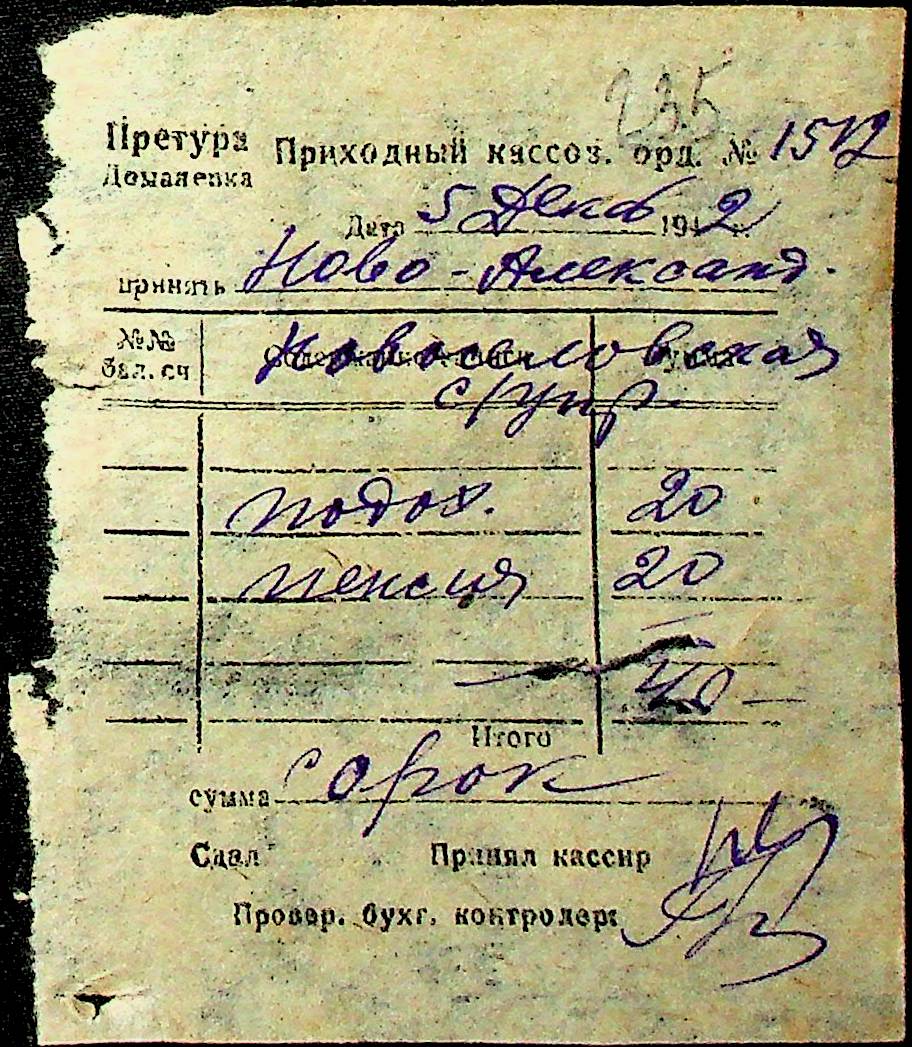 235
Претура Приходный кассов. орд. № 1512
Доманевка
Дата 5 Декаб 1942 г.
принять Ново-Александ.
№№ бал. сч Содержание записи Сумма
Новоселовская
подох. 20
пенсия 20
40
Итого
сумма сорок
Сдал Принял кассир
Провер. бухг. контролер: